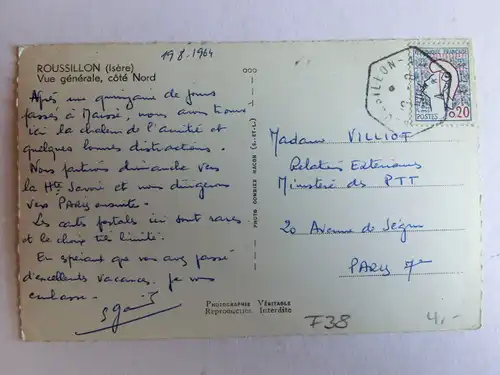 19-8-1964
ROUSSILLON (Isère)
Vue générale, côté Nord
Après une quinzaine de jours
passés à , nous avons trouvé
ici la chaleur de l'amitié et
quelques bonnes distractions.
Nous partirons dimanche vers
la Hte Savoie et nous dirigerons
vers Paris ensuite.
Les cartes postales ici sont rares
et le choix très limité.
En espérant que vous avez passé
d'excellentes vacances. Je vous
embrasse.
PHOTO COMBIER MACON (S.-ET-L.)
PHOTOGRAPHIE VÉRITABLE
Reproduction Interdite
ROUSSILLON
RÉPUBLIQUE FRANÇAISE
POSTES 0,20
Madame VILLIOT
Relations Extérieures
Ministère des PTT
20 Avenue de Ségur
PARIS 7e
F38
4,-